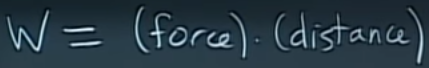 W = (force) · (distance)